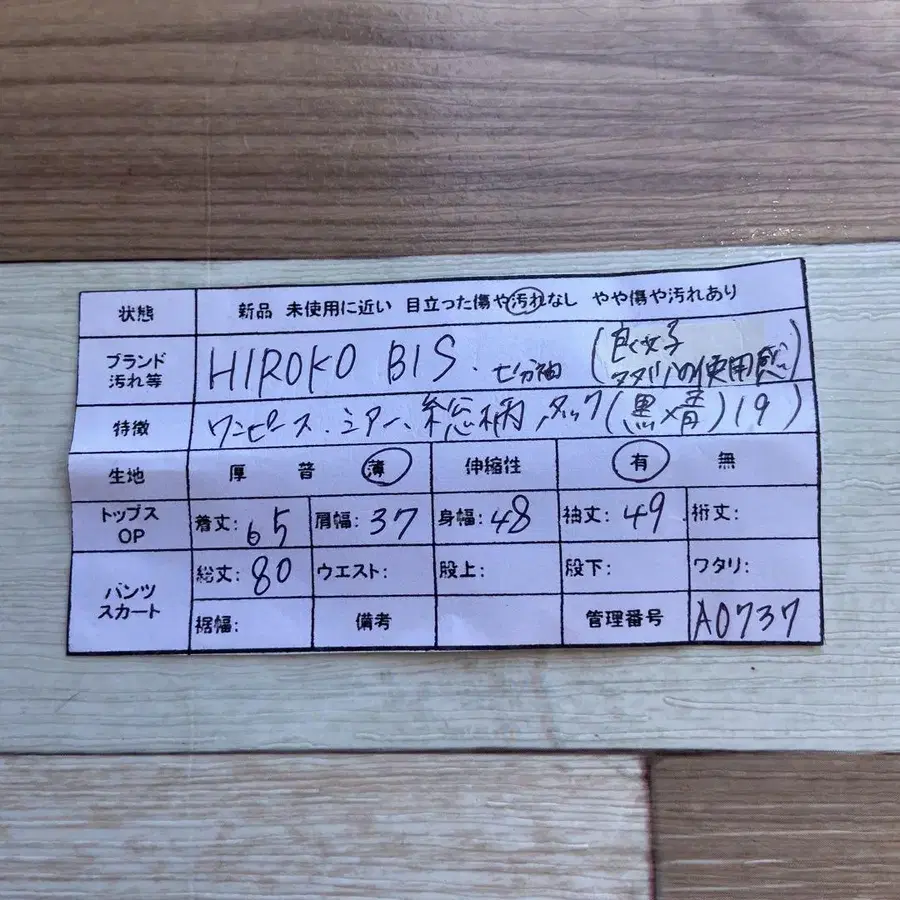 状態 新品 未使用に近い 目立った傷や汚れなし やや傷や汚れあり
ブランド 汚れ等 HIROKO BIS. 七分袖 (良好 の使用感)
特徴 ワンピース.シアー、総柄 タック(黒×青)(9)
生地 厚 普 薄 伸縮性 有 無
トップス OP 着丈: 65 肩幅: 37 身幅: 48 袖丈: 49 裄丈:
パンツ スカート 総丈: 80 ウエスト: 股上: 股下: ワタリ:
裾幅: 備考 管理番号 A0737